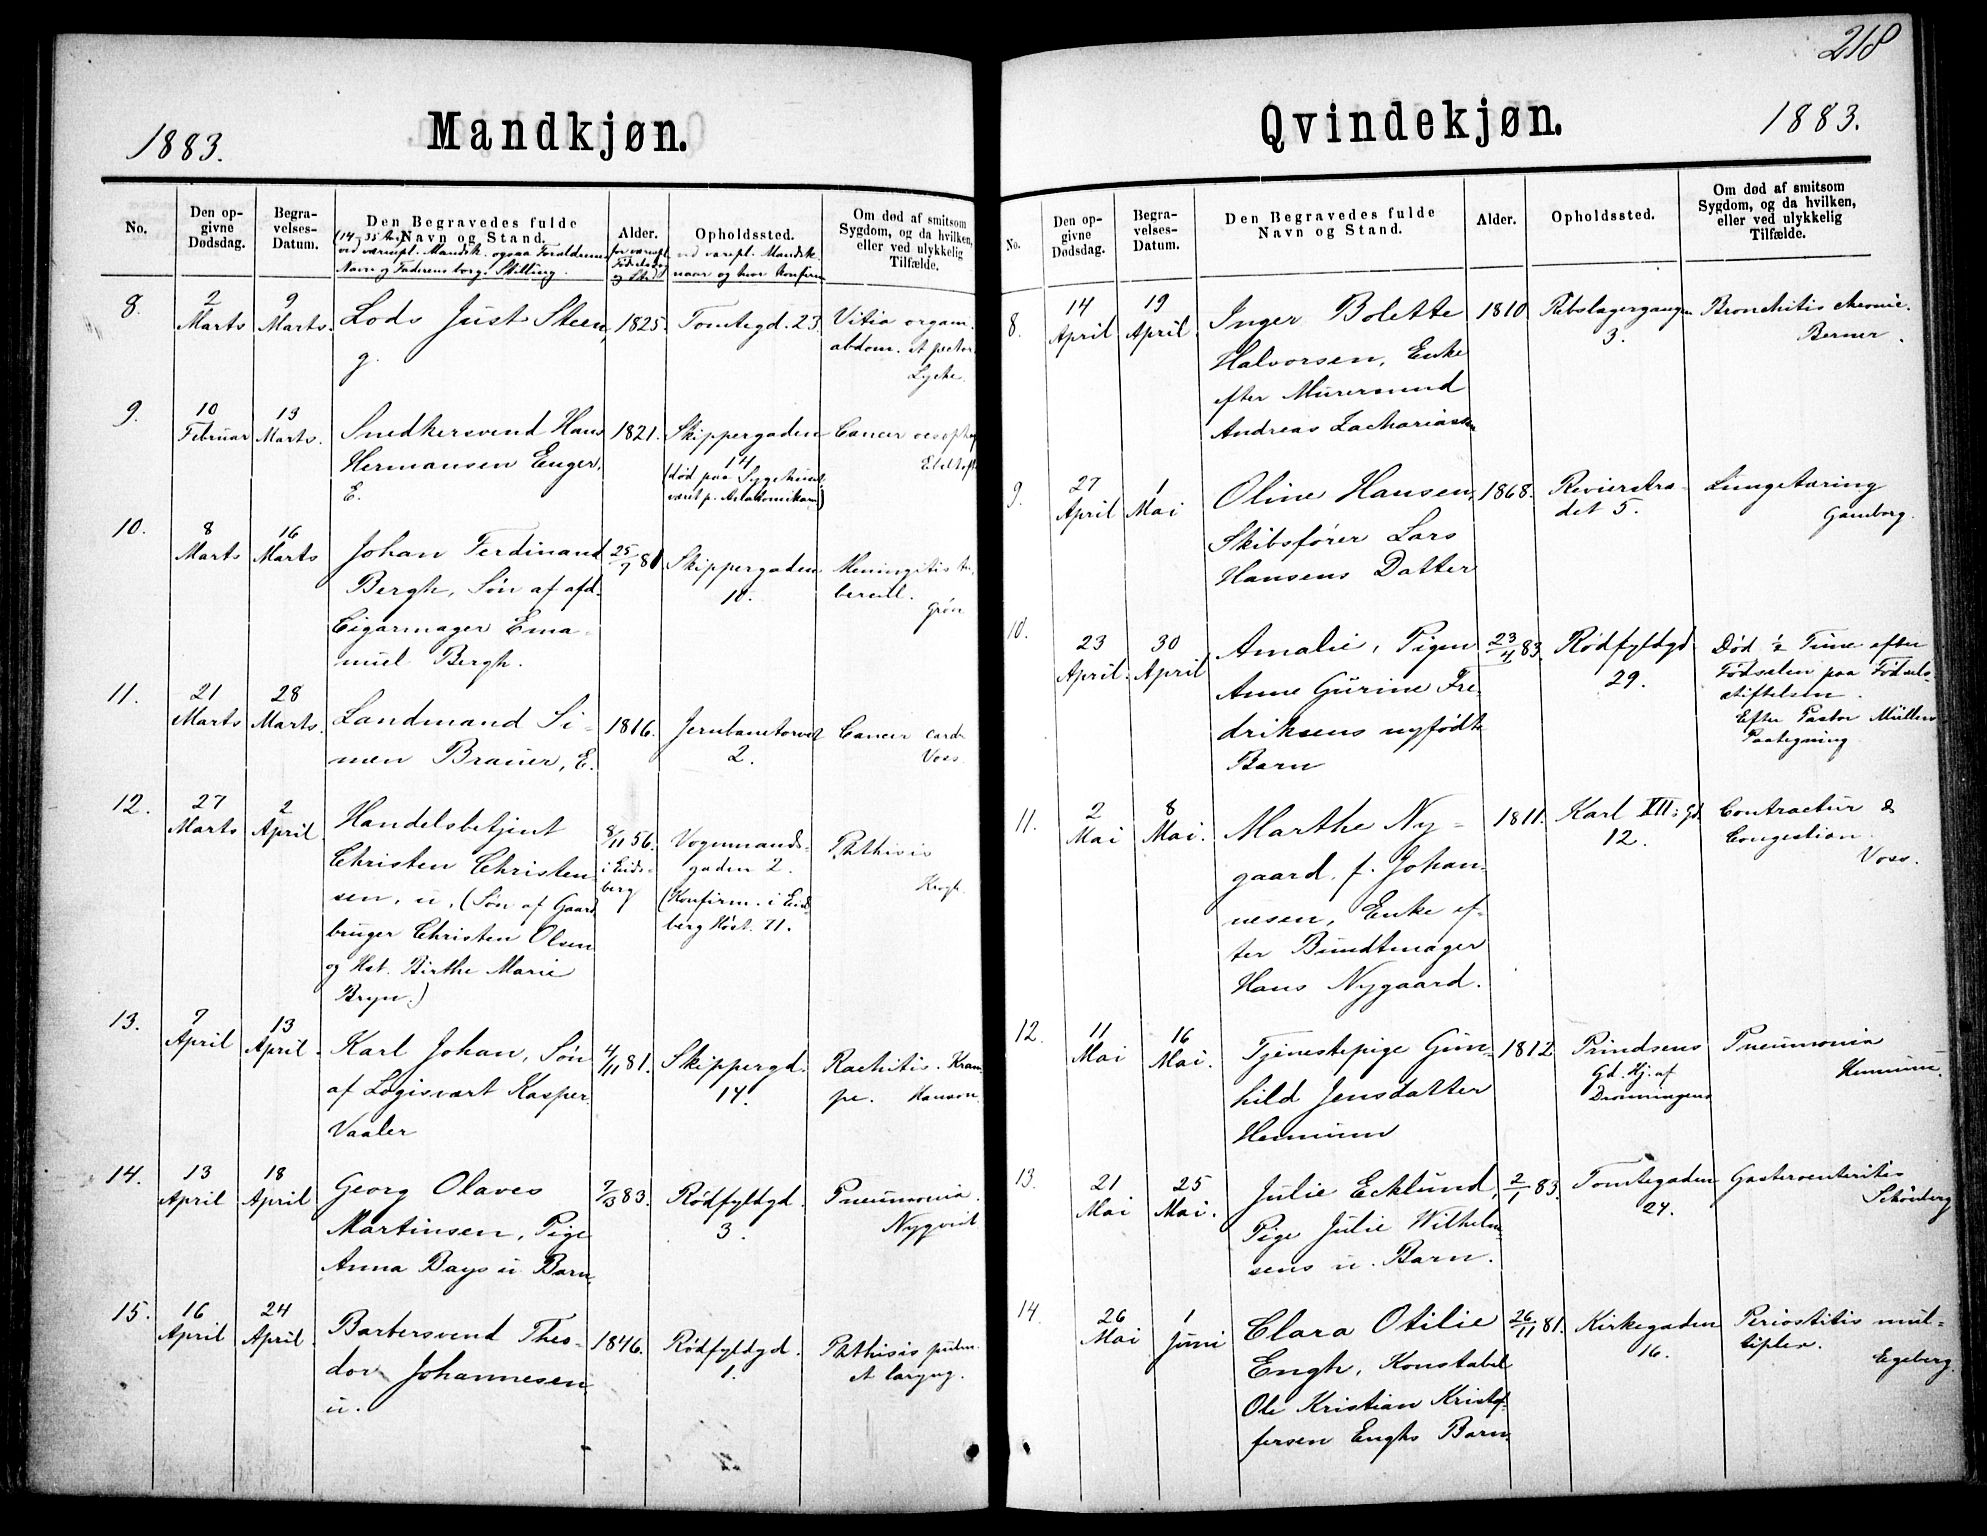 218
1883.
Mandkjøn.
No.
Den op-
givne
Dødsdag.
Begra-
velses-
Datum.
Den Begravedes fulde
Navn og Stand.
(14-35 Aar)
ved værnepl. Mandsk. ogsaa Forældrenes
Navn og Faderens borg. Stilling.
Alder.
for værnepl.
Fødselsdag
og Sted
Opholdssted.
ved værnepl. Mandsk.
naar og hvor konfirm.
Om død af smitsom
Sygdom, og da hvilken,
eller ved ulykkelig
Tilfælde.
8.
2
Marts
9
Marts.
Lods Just Steen,
g.
1825.
Tomtegd. 23.
Vitia organ.
abdom. et pector.
Lyche.
9.
10
Februar
13
Marts.
Snedkersvend Hans
Hermansen Enger,
E.
1821.
Skippergaden
14
(død paa Sygehuset,
været p. Anatomikam.)
Cancer oesoph.
10.
8
Marts
16
Marts
Johan Ferdinand
Bergh, Søn af afd.
Cigarmager Ema-
nuel Bergh.
25/7 80
Skippergaden
10.
Meningitis tu-
bercul.
Grøn
11.
21
Marts
28
Marts.
Landmand Si-
men Brauer, E.
1816.
Jernbanetorvet
2.
Cancer card.
Voss.
12.
27
Marts
2
April
Handelsbetjent
Christen Christen-
sen, u, (Søn af Gaard
bruger Christen Olsen
og Hst. Birthe Marie
Bryn.)
8/11 56.
i Eids-
berg
Vognmands-
gaden 2.
(Konfirm. i Eids
berg Høst. 71.
Phthisis
Krogh.
13.
7
April
13
April.
Karl Johan, Søn
af Logisvært Kasper
Vaaler
4/11 81.
Skippergd.
14.
Rachitis. Kram-
pe. Hanson.
14.
13
April
18
April
Georg Olaves
Martinsen, Pige
Anna Bays u. Barn.
7/3 83.
Rødfyldgd.
3.
Pneumonia.
Nyqvist
15.
16
April
24
April.
Barbersvend Theo-
dor Johannesen
u.
1846.
Rødfyldgd.
1.
Phthisis pulm.
et laryng.
Qvindekjøn.
1883.
No.
Den op-
givne
Dødsdag.
Begra-
velses-
Datum.
Den Begravedes fulde
Navn og Stand.
Alder.
Opholdssted.
Om død af smitsom
Sygdom, og da hvilken,
eller ved ulykkelig
Tilfælde.
8.
14
April
19
April.
Inger Bolette
Halvorsen, Enke
efter Murersvend
Andreas Zachariassen
1810.
Rebslagergangen
3.
Bronchitis chronic.
Berner.
9.
27
April
1
Mai
Oline Hansen,
Skibsfører Lars
Hansens Datter
1868.
Revierstræ-
det 5.
Lungetæring
Gamborg.
10.
23
April.
30
April
Amalie, Pigen
Anne Gurine Fre-
driksens nyfødte
Barn
23/4 83.
Rødfyldgd
29.
Død ½ Time efter
Fødselen paa Fødsels-
stiftelsen.
Efter Pastor Müllers
Paategning.
11.
2
Mai
8
Mai.
Marthe Ny-
gaard, f. Johan-
nesen, Enke ef-
ter Bundtmager
Hans Nygaard.
1811.
Karl XII: Gd.
12.
Contractur &
Congestion
Voss.
12.
11
Mai
16
Mai.
Tjenestepige Gun-
hild Jensdatter
Hemmun
1812
Prindsens
Gd. Hj. af
Dronningens
Pneumonia
13.
21
Mai
25
Mai.
Julie Ecklund,
Pige Julie Wilhelm-
sens u. Barn.
2/1 83.
Tomtegaden
24.
Gasteroenteritis
Schönberg
14.
26
Mai
1
Juni
Clara Otilie
Engh, Konstabel
Ole Kristian Kristof-
fersen Enghs Barn.
26/11 81.
Kirkegaden
16.
Periostitis mul-
tiplex.
Egeberg.